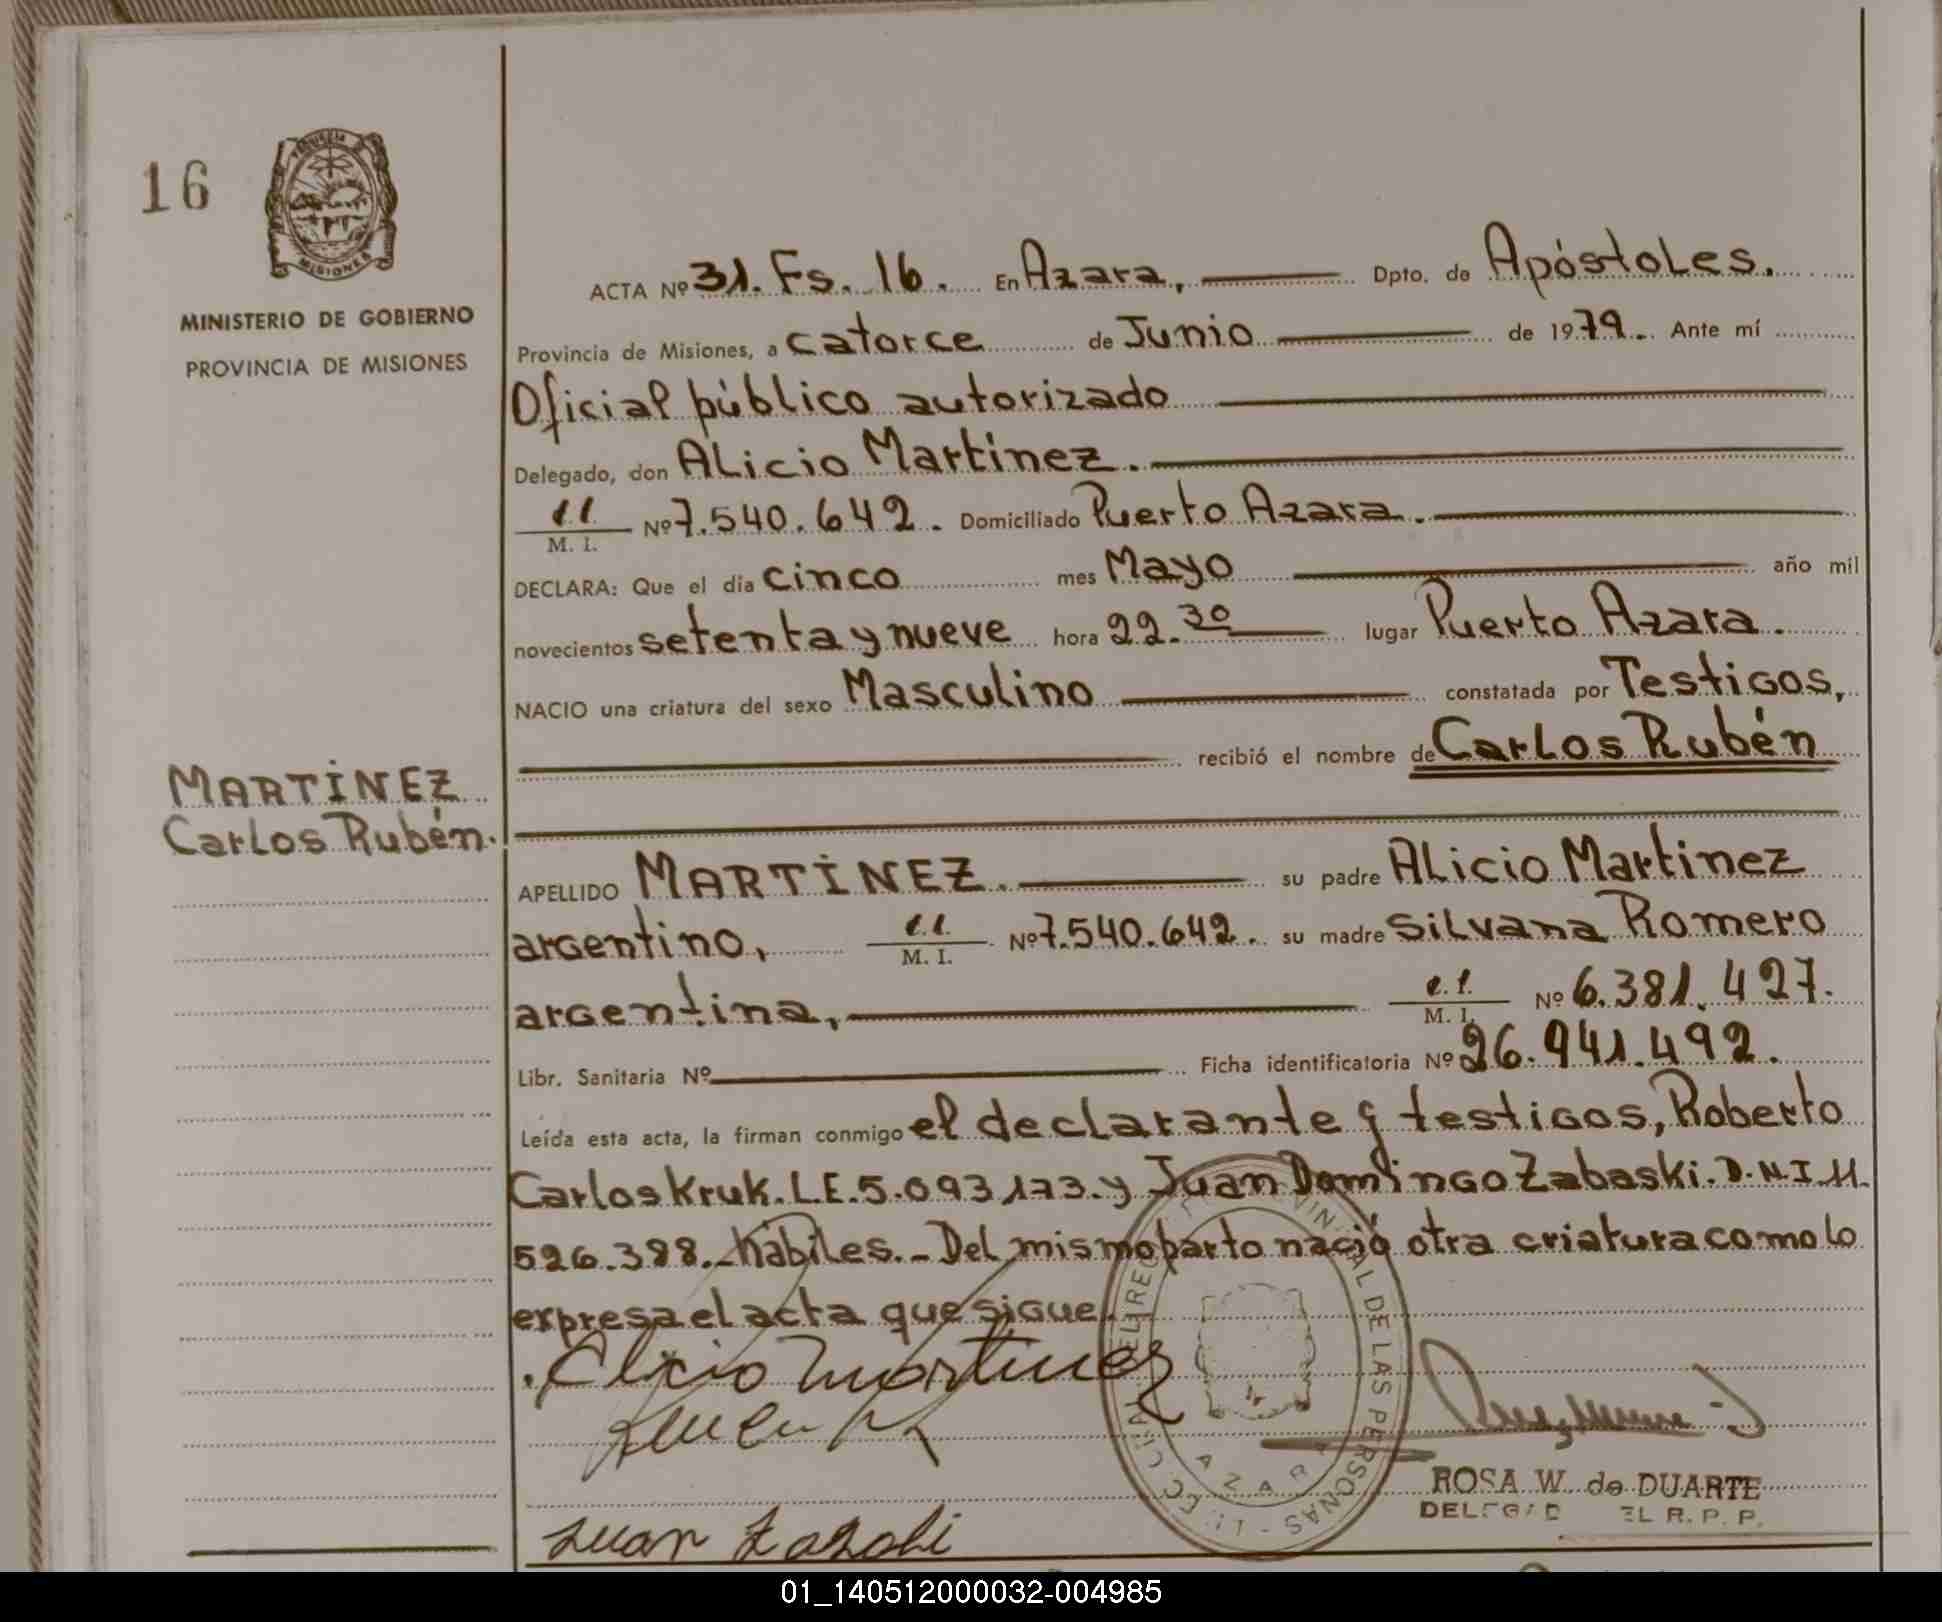 16
PROVINCIA
MISIONES
MINISTERIO DE GOBIERNO
PROVINCIA DE MISIONES
ACTA Nº 31. Fs. 16. En Azara, Dpto. de Apóstoles.
Provincia de Misiones, a catorce de Junio de 1979. Ante mí
Oficial público autorizado
Delegado, don Alicio Martinez.
M. I. Nº 7.540.642. Domiciliado Puerto Azara.
DECLARA: Que el dia cinco mes Mayo año mil
novecientos setenta y nueve hora 22.30 lugar Puerto Azara.
NACIO una criatura del sexo Masculino constatada por Testigos,
recibió el nombre de Carlos Rubén
MARTINEZ
Carlos Rubén.
APELLIDO MARTINEZ. su padre Alicio Martinez
argentino, M. I. Nº 7.540.642. su madre Silvana Romero
argentina, M. I. Nº 6.381.427.
Libr. Sanitaria Nº Ficha identificatoria Nº 26.941.492.
Leída esta acta, la firman conmigo el declarante y testigos, Roberto
Carlos Kruk. L.E. 5.093.173. y Juan Domingo Zabaski. D.N.I. 11.
526.388. hábiles. Del mismo parto nació otra criatura como lo
expresa el acta que sigue.
Alicio Martinez
DE LAS PERSONAS
AZARA
ROSA W. de DUARTE
EL R. P. P.
Juan
01_140512000032-004985